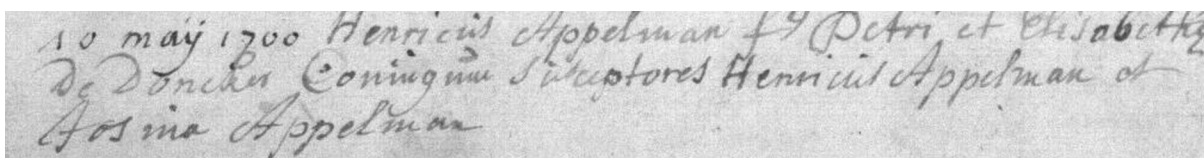 10 maÿ 1700 Henricus Appelman fs Petri et Elisabethæ
De Doncker Coniugum Susceptores Henricus Appelman et
Josina Appelman